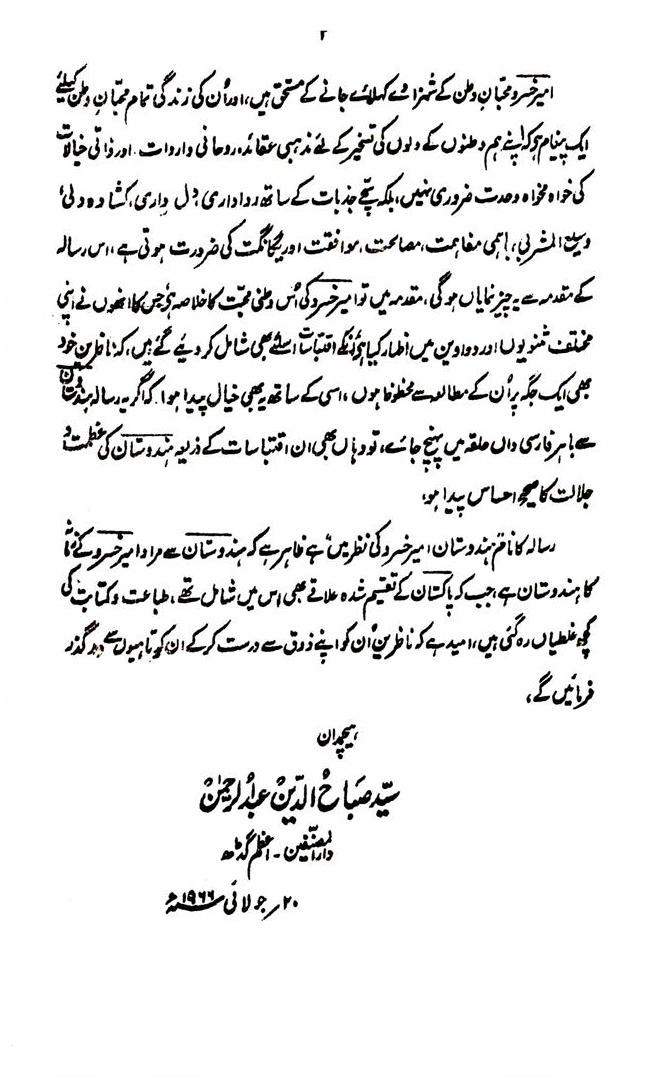 ۲
امیر خسرو محبانِ وطن کے شہزادے کہلائے جانے کے مستحق ہیں، اور اُن کی زندگی تمام محبّانِ وطن کیلئے
ایک پیغام ہو کہ اپنے ہم وطنوں کے دلوں کی تسخیر کے لئے مذہبی عقائد، روحانی واردات۔ اور ذاتی خیالات
کی خواہ مخواہ وحدت ضروری نہیں، بلکہ سچّے جذبات کے ساتھ رواداری، دل داری، کشادہ دلی،
وسیع المشربی، باہمی مفاہمت، مصالحت، موافقت اور یگانگت کی ضرورت ہوتی ہے، اس رسالہ
کے مقدمہ سے یہ چیز نمایاں ہوگی، مقدمہ میں تو امیر خسرو کی اُس وطنی محبت کا خلاصہ ہو جس کا انھوں نے اپنی
مختلف مثنویوں اور دواوین میں اظہار کیا ہو، انکے اقتباسات اسلئے بھی شامل کر دیئے گئے ہیں، کہ ناظرین خود
بھی ایک جگہ پر اُن کے مطالعہ سے محظوظ ہوں، اسی کے ساتھ یہ بھی خیال پیدا ہوا۔ کہ اگر یہ رسالہ ہندوستان
سے باہر فارسی داں حلقہ میں پہنچ جائے، تو وہاں بھی ان اقتباسات کے ذریعہ ہندوستان کی عظمت و
جلالت کا صحیح احساس پیدا ہو،
رسالہ کا نام ہندوستان امیر خسرو کی نظر میں" ہے ظاہر ہے کہ ہندوستان سے مراد امیر خسرو کے زمانہ
کا ہندوستان ہے، جب کہ پاکستان کے تقسیم شدہ علاقے بھی اس میں شامل تھے، طباعت و کتابت کی
کچھ غلطیاں رہ گئی ہیں، امید ہے کہ ناظرین اُن کو اپنے ذوق سے درست کر کے ان کوتاہیوں سے درگذر
فرمائیں گے،
ہیچمدان
سیّد صباح الدّین عبدالرحمٰن
دارالمصنّفین - اعظم گڈھ
۲۰؍ جولائی ۱۹۶۶ء